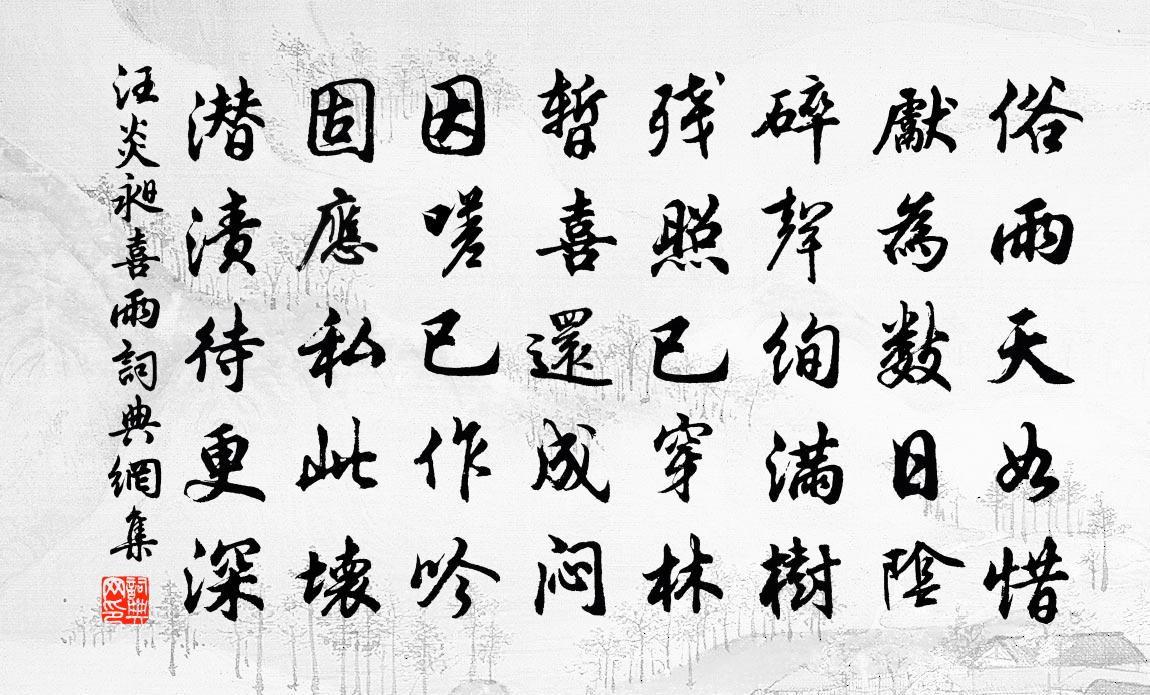 俗雨天如惜
獻為數日陰
碎聲絢滿樹
残照已穿林
暫喜還成闷
因嗟已作吟
固應私此壞
潜漬待更深
汪炎昶喜雨詞典網集